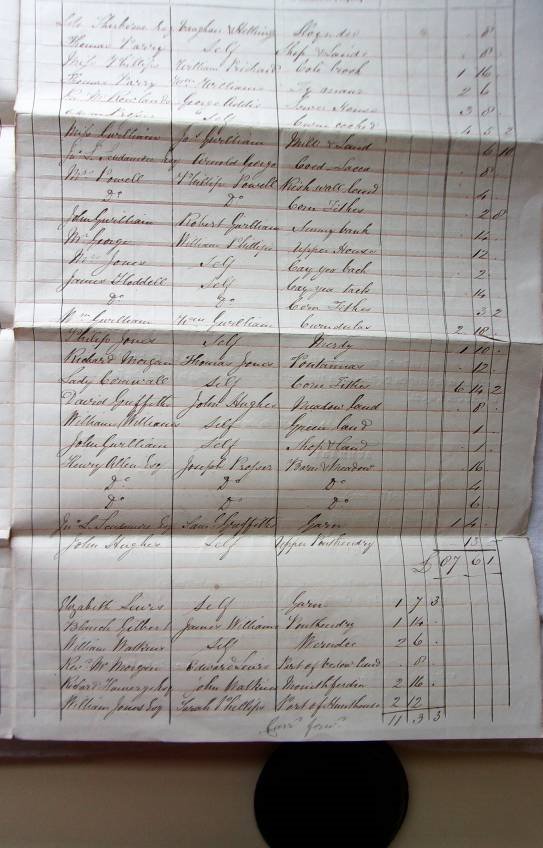 Self Shop & Lands . 8 .
Miss Phillips William Prichard Colebrook 1 16 .
Thomas Parry Wm Williams 2 6 .
George Addis Lower House 3 8 .
Self 4 5 2
Miss Gwilliam Jas Gwilliam Mill & Land . 6 10
Arnold George . 8 .
Mrs Powell Phillip Powell land . 4 .
Do Do Corn Tithes . 2 8
John Gwilliam Robert Gwilliam Sunny bank . 14 .
Mr George William Phillips Upper House . 12 .
Mrs Jones Self Cay yea bach . 2 .
James Hoddell Self Cay yea bach . 14 .
Do Do Corn Tithes . 3 2
Wm Gwilliam Wm Gwilliam Cwmdulas 2 18 .
Philip Jones Self Merdy 1 10 .
Richard Morgan Thomas Jones Pontannas . 12 .
Lady Cornwall Self Corn Tithes 6 14 2
David Griffith John Hughes Meadow land . 8 .
William Williams Self Green land . 1 .
John Gwilliam Self Shop & land . 1 .
Henry Allen Esq Joseph Prosser Barn & Meadow . 16 .
Do Do Do . 4 .
Do Do Do . 6 .
Esq Saml Griffiths Garn 1 4 .
John Hughes Self Upper Ponthendry . 13 .
£ 87 6 1
Elizabeth Lewis Self Garn 1 7 3
Blanch Gilbert James Williams Ponthendry 1 14 .
William Watkins Self Werndee 2 6 .
Revd Mr Morgan Edward Lewis Part of below land . 8 .
Richard Esq John Watkins 2 16 .
William Jones Esq Sarah Phillips Part of Hunthouse 2 12
11 . 3 3
Carrd forwd